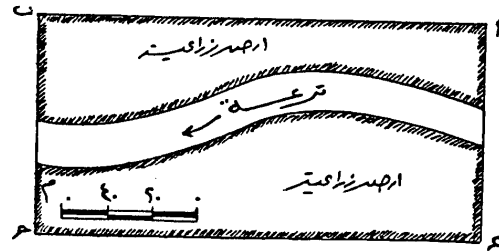 ب
ارض زراعية
ترعة
ارض زراعية
٠ ٢٠ ٤٠
ح